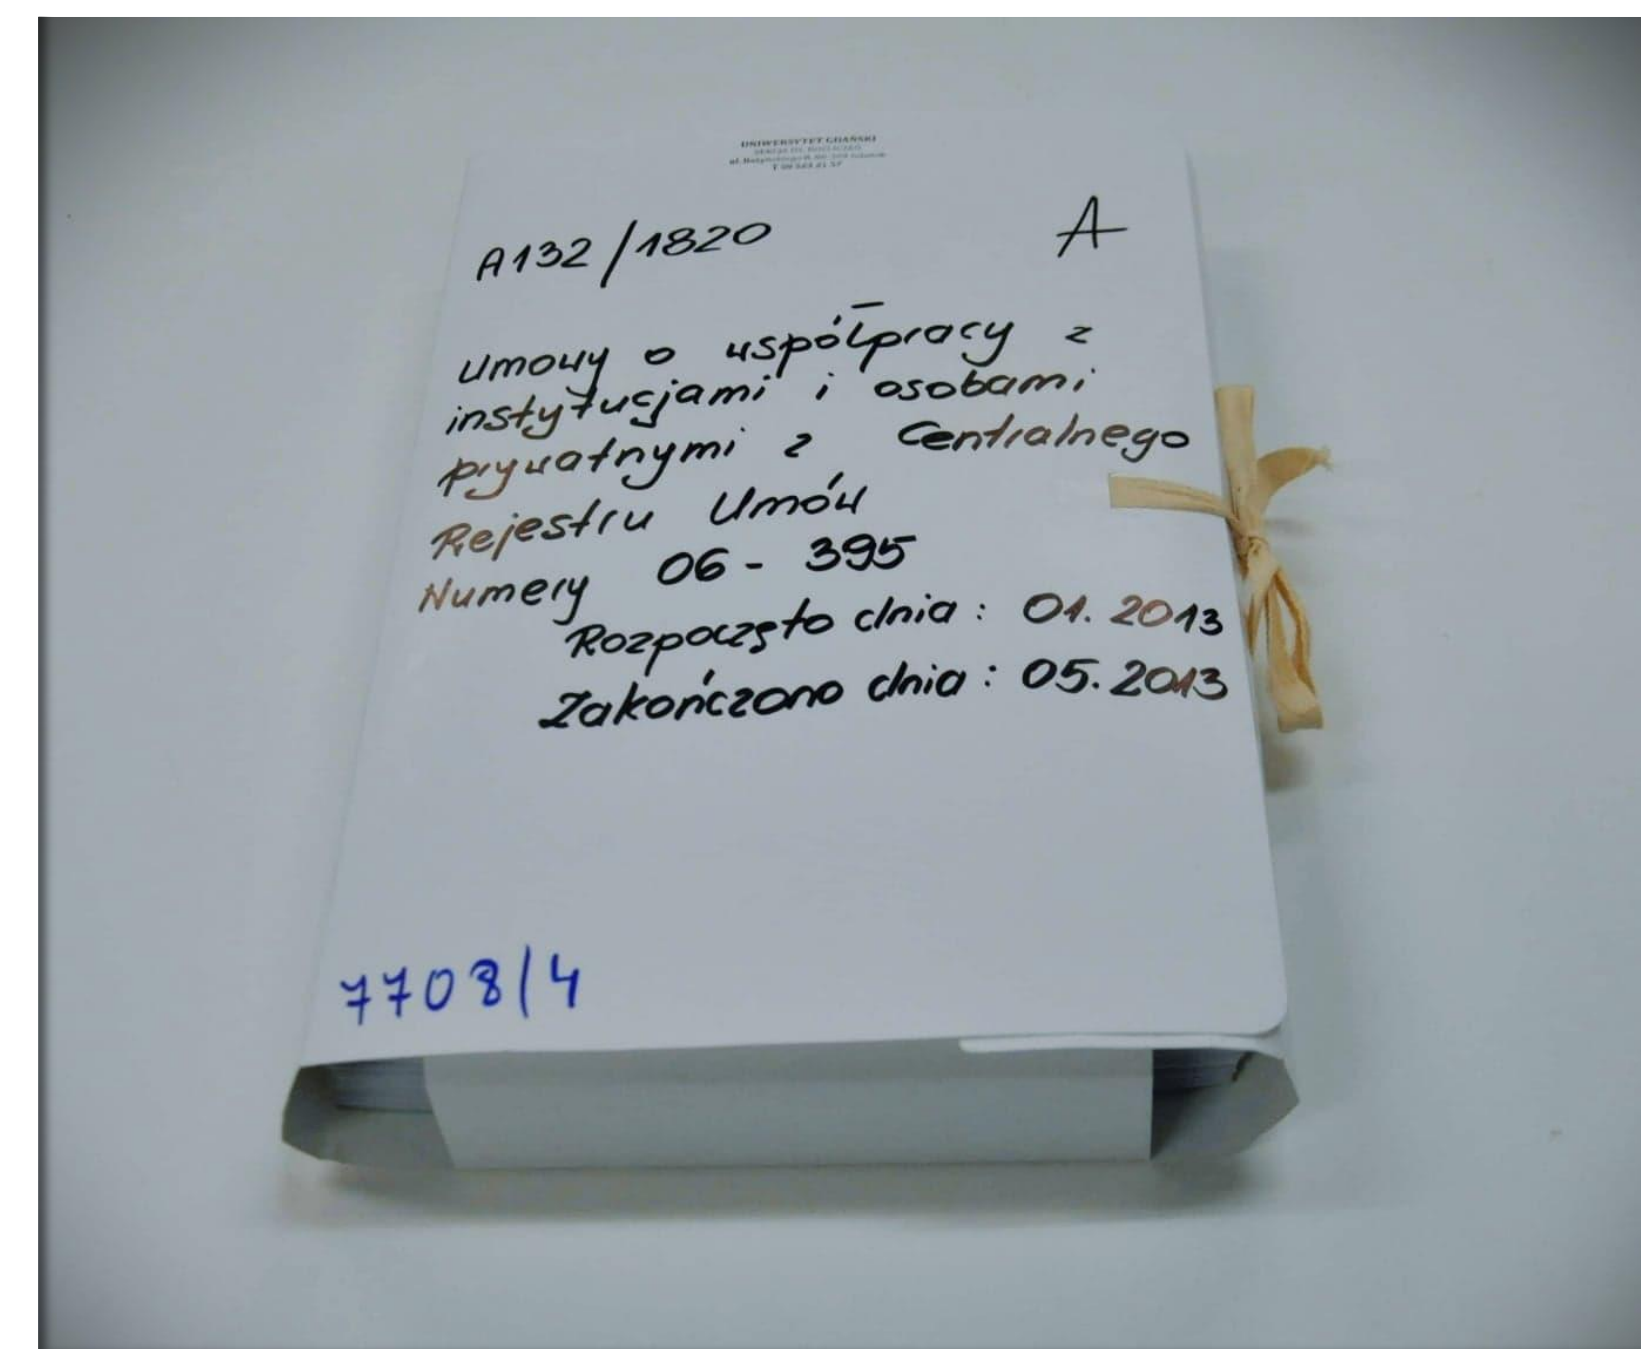 UNIWERSYTET GDAŃSKI
A132/1820
A
Umowy o współpracy z
instytucjami i osobami
prywatnymi z Centralnego
Rejestru Umów
Numery 06 - 395
Rozpoczęto dnia : 01. 2013
Zakończono dnia : 05. 2013
7708/4